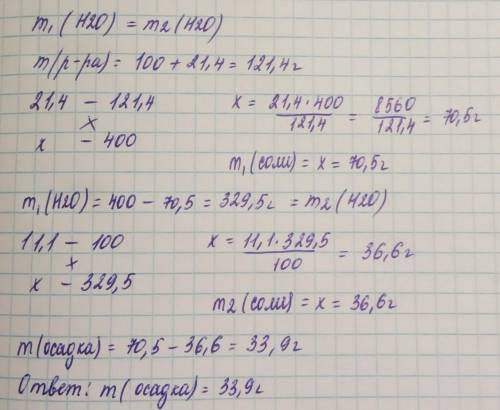 m₁(H2O) = m2(H2O)
m(р-ра) = 100 + 21,4 = 121,4г
21,4 – 121,4
x
x – 400
x = 21,4·400 / 121,4 = 8560 / 121,4 = 70,5г
m₁(соли) = x = 70,5г
m₁(H2O) = 400 – 70,5 = 329,5г = m2(H2O)
11,1 – 100
x
x – 329,5
x = 11,1·329,5 / 100 = 36,6г
m2(соли) = x = 36,6г
m(осадка) = 70,5 – 36,6 = 33,9г
Ответ: m(осадка) = 33,9г